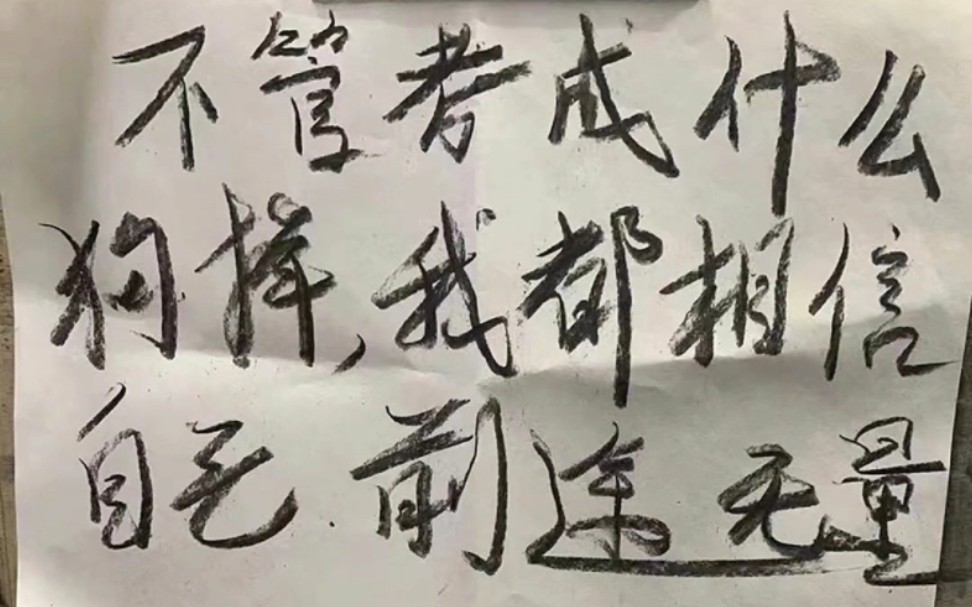 不管考成什么
狗样,我都相信
自己前途无量